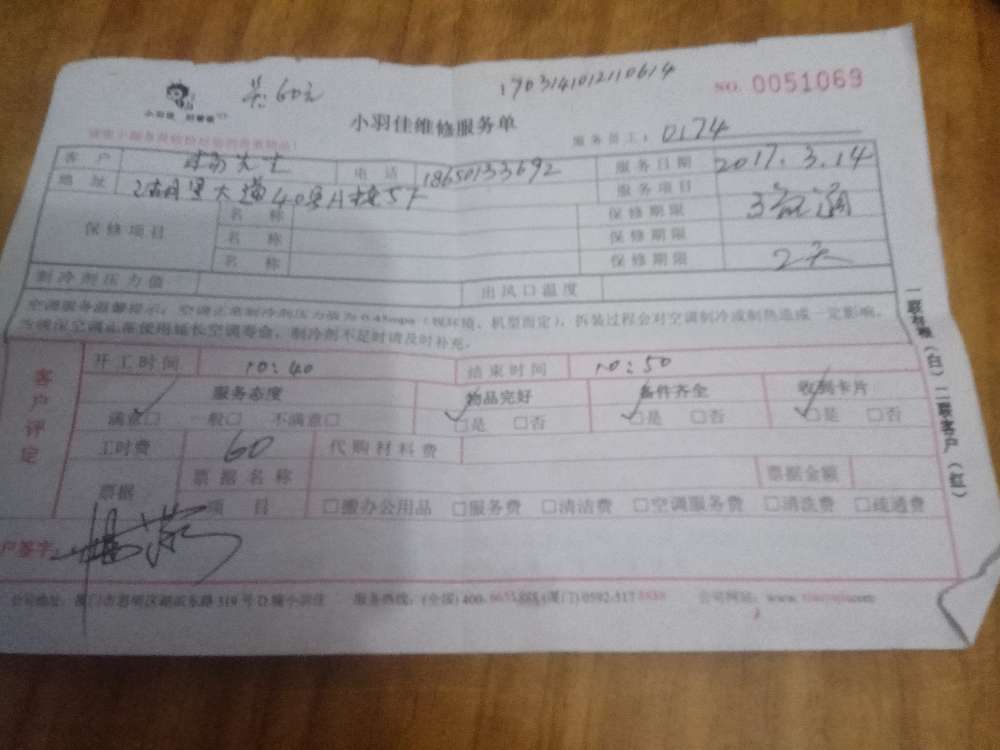 共60元
1703141012110614
NO. 0051069
小羽佳维修服务单
服务员工：0174
客户 女士 电话 18650133692 服务日期 2017.3.14
地址 大道40号 服务项目 疏通
保修项目 名称 保修期限
名称 保修期限
名称 保修期限 2天
制冷剂压力值 出风口温度
空调服务温馨提示：空调正常制冷剂压力值为0.45mpa（视环境、机型而定），拆装过程会对空调制冷或制热造成一定影响。
为确保空调正常使用延长空调寿命，制冷剂不足时请及时补充。
一联存根（白）二联客户（红）
客户评定
开工时间 10:40 结束时间 10:50
服务态度 物品完好 备件齐全 收到卡片
满意□ 一般□ 不满意□ □是 □否 □是 □否 □是 □否
工时费 60 代购材料费
票据 票据名称 票据金额
项目 □搬办公用品 □服务费 □清洁费 □空调服务费 □清洗费 □疏通费
户签字：
公司地址：厦门市思明区湖滨东路319号D 小羽佳 服务热线：(全国)400- (厦门)0592-517 公司网站：www. .com